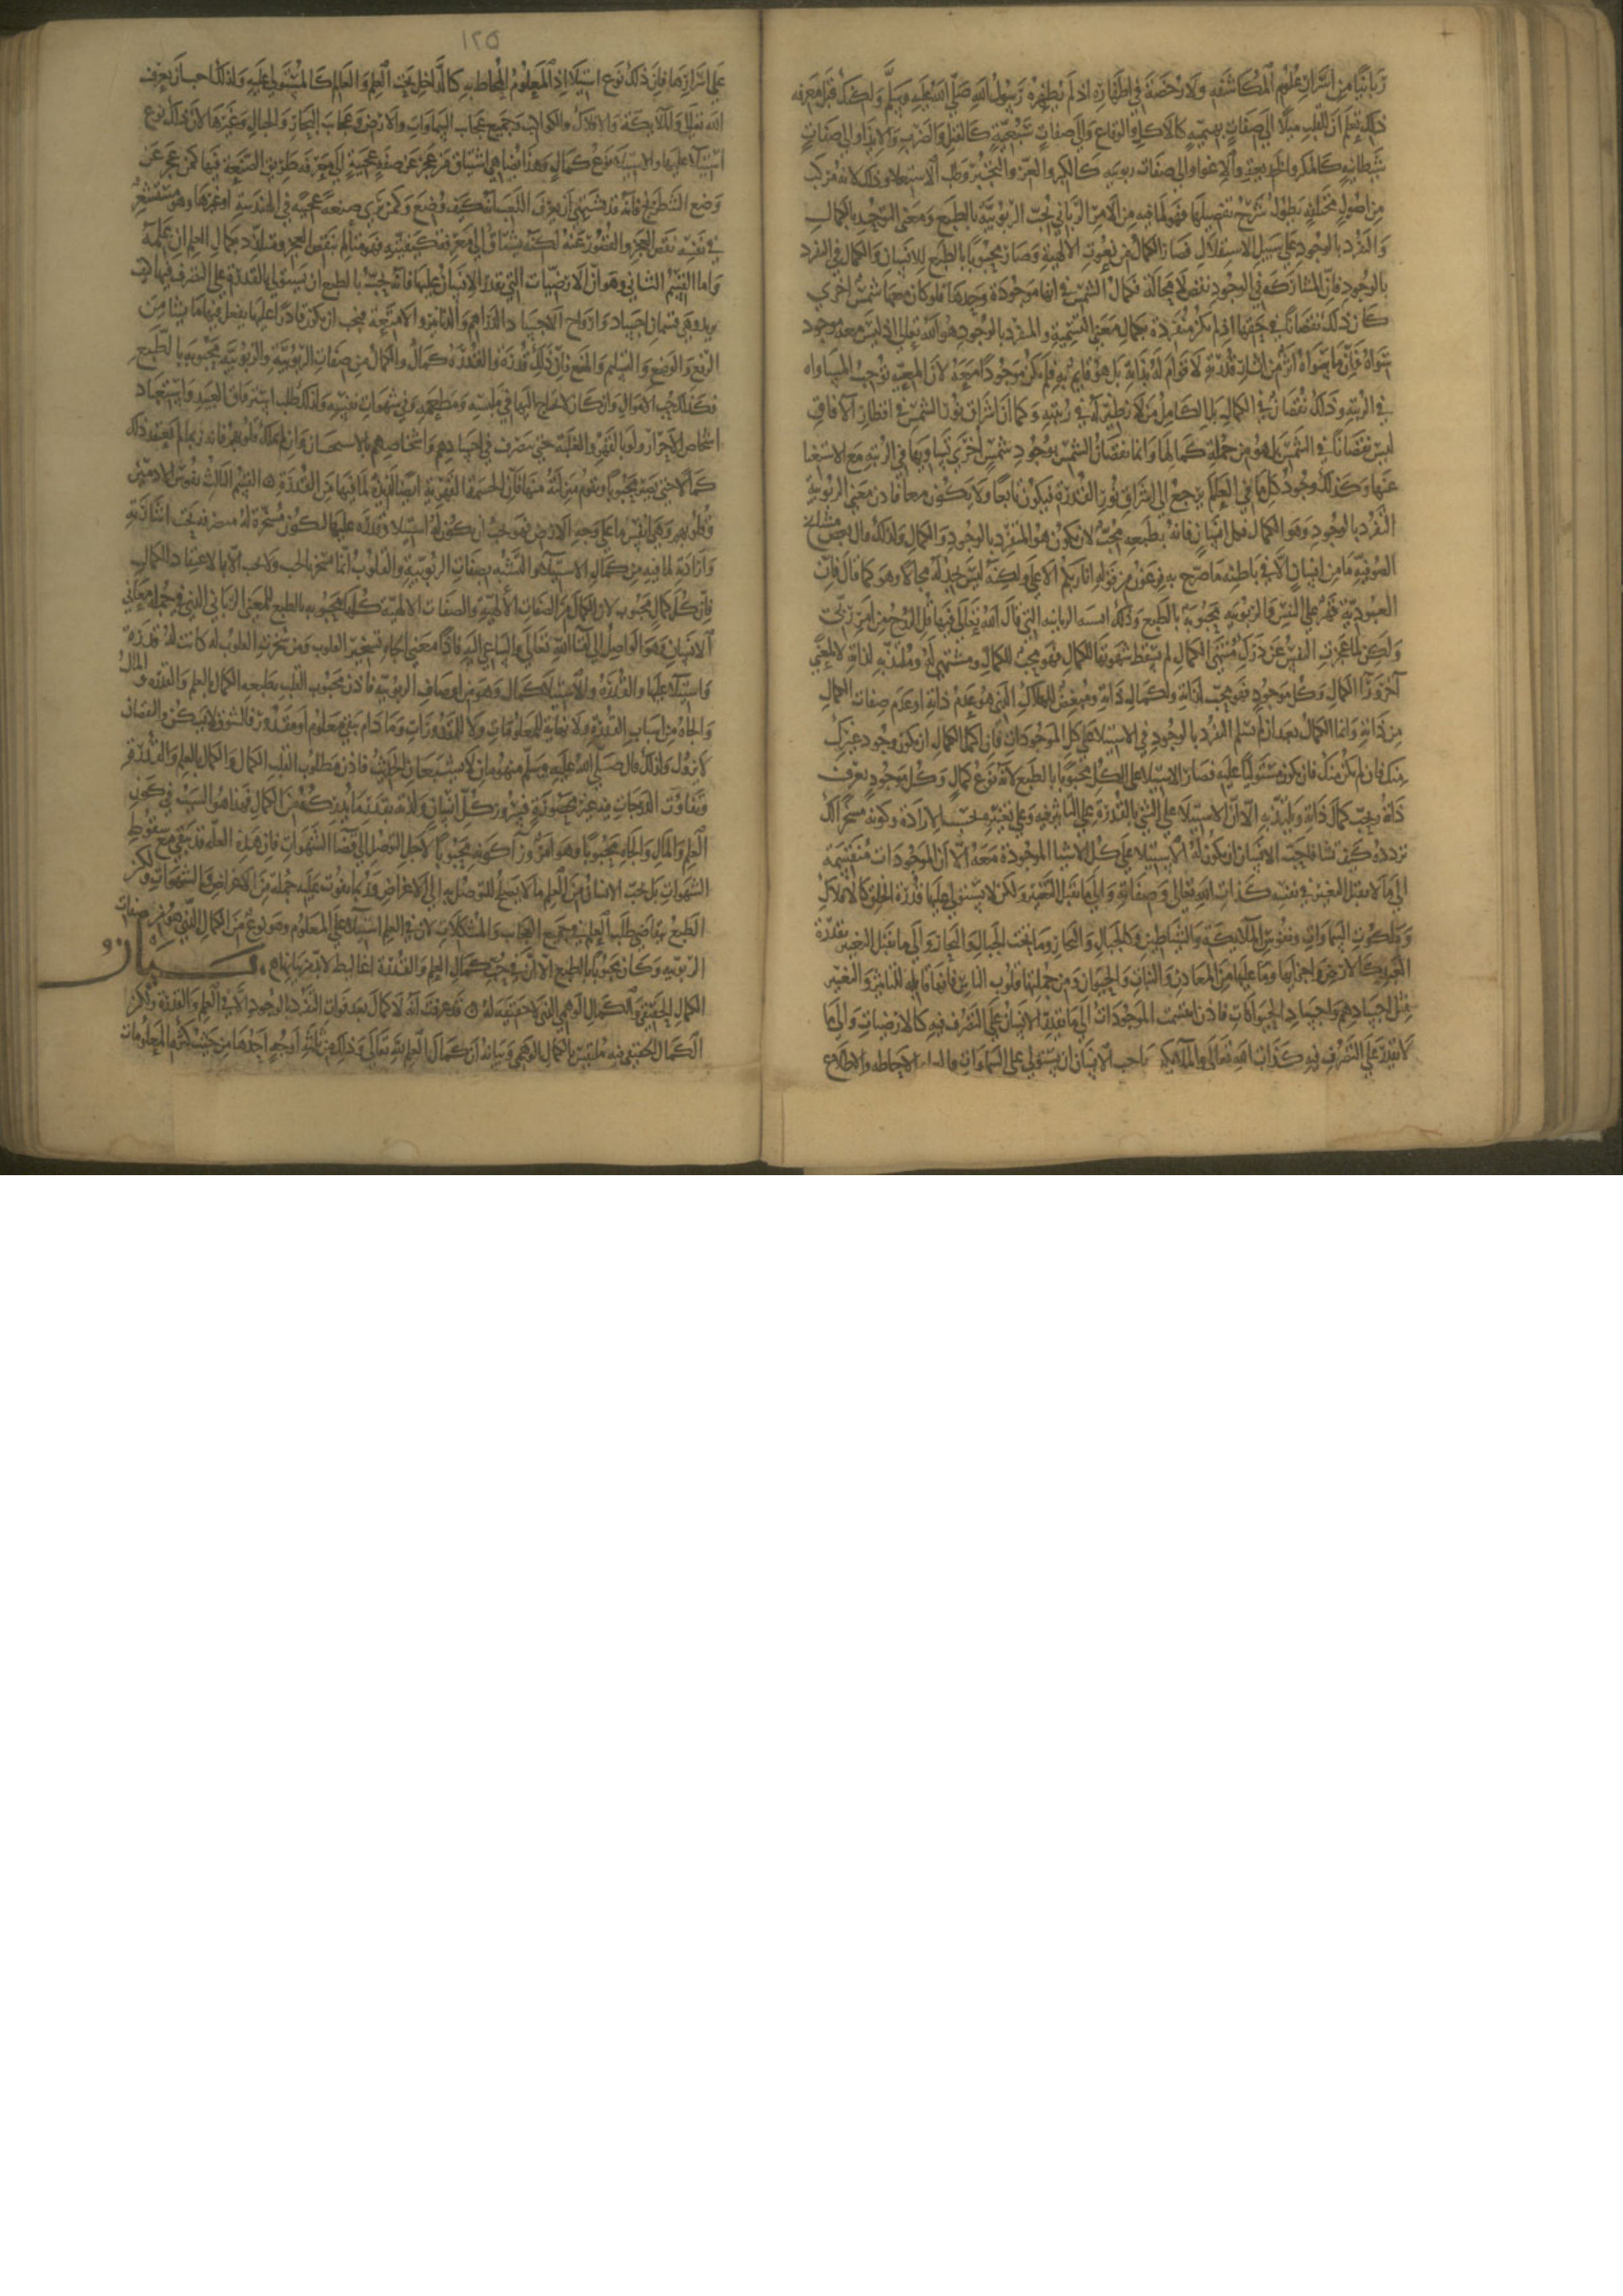 ربانيا من اسرار علوم المكاشفه ولا رخصة في اظهاره اذ لم يظهره رسول الله صلى الله عليه وسلم ولكنك قبل معرفه
ذلك تعلم ان للقلب ميلا الى صفات بهيميه كالاكل والوقاع والى صفات سبعية كالقتل والضرب والايذا والى صفات
شيطانيه كالمكر والخديعة والاغوا والى صفات ربوبيه كالكبر والعز والتجبر وطلب الاستعلا وذلك لانه مركب
من اصول مختلفه يطول شرح تفصيلها فهو لما فيه من الامر الرباني يحب الربوبية بالطبع ومعنى التوحد بالكمال
والتفرد بالوجود على سبيل الاستقلال فصار الكمال من نعوت الالهية وصار محبوبا بالطبع للانسان والكمال في التفرد
بالوجود فان المشاركه في الوجود نقص لا محالة فكمال الشمس في انها موجودة وحدها فلو كان معها شمس اخرى
كان ذلك نقصانا في حقها اذ لم تكن منفردة بكمال معنى الشمسية والمتفرد بالوجود هو الله تعالى اذ ليس معه موجود
سواه فان ما سواه اثر من اثار قدرته لا قوام له بذاته بل هو قايم به فلم يكن موجودا معه لان المعية توجب المساواه
في الرتبة وذلك نقصان في الكمال بل الكامل من لا نظير له في رتبته وكما ان اشراق نور الشمس في اقطار الافاق
ليس نقصانا في الشمس بل هو من جملة كمالها وانما نقصان الشمس بوجود شمس اخرى تساويها في الرتبه مع الاستغنا
عنها وكذلك وجود كل ما في العالم يرجع الى اشراق نور القدرة فيكون تابعا ولا يكون معا فاذن معنى الربوبية
التفرد بالوجود وهو الكمال وكل انسان فانه بطبعه محب لان يكون هو المتفرد بالوجود والكمال ولذلك قال بعض مشايخ
الصوفيه ما من انسان الا في باطنه ما صرح به فرعون من قوله انا ربكم الاعلى ولكنه ليس يجد له مجالا وهو كما قال فان
العبودية قهر على النفس والربوبيه محبوبة بالطبع وذلك للنسبه الربانيه التي قال الله تعالى فيها قل الروح من امر ربي
ولكن لما عجزت النفس عن درك منتهى الكمال لم تسقط شهوتها للكمال فهو محب للكمال ومشتهي له وملتذ به لذاته لا لمعنى
اخر وراء الكمال وكل موجود فهو محب لذاته ولكمال ذاته ومبغض للهلاك الذي هو عدم ذاته او عدم صفات الكمال
من ذاته وانما الكمال بعد ان لم يسلم التفرد بالوجود في الاستيلا على كل الموجودات فان اكمل الكمال ان يكون وجود غيرك
منك فان لم يكن منك فان تكون مستوليا عليه فصار الاستيلا على الكل محبوبا بالطبع لانه نوع كمال وكل موجود يعرف
ذاته يحب كمال ذاته ويلتذ به الا ان الاستيلا على الشي بالقدرة على التاثير فيه وعلى تغييره بحسب الارادة وكونه مسخرا لك
تردده كيف تشا فاحب الانسان ان يكون له الاستيلا على كل الاشيا الموجودة معه الا ان الموجودات منقسمة
الى ما لا يقبل التغيير في نفسه كذات الله تعالى وصفاته والى ما يقبل التغيير ولكن لا يستولي عليها قدرة الخلق كالافلاك
وملكوت السماوات ونفوس الملايكة والشياطين وكالجبال والبحار وما تحت الجبال والبحار والى ما يقبل التغيير بقدرة
العبد كالارض واجزايها وما عليها من المعادن والنبات والحيوان ومن جملتها قلوب الناس فانها قابله للتاثير والتغيير
مثل اجسادهم واجساد الحيوانات فاذن انقسمت الموجودات الى ما يقدر الانسان على التصرف فيه كالارضيات والى ما
لا يقدر على التصرف فيه كذات الله تعالى والملايكه فاحب الانسان ان يستولي على السماوات بالعلم والاحاطه والاطلاع
١٢٥
على اسرارها فان ذلك نوع استيلا اذ المعلوم المحاط به كالداخل تحت العلم والعالم كالمستولي عليه ولذلك احب ان يعرف
الله تعالى والملايكة والافلاك والكواكب وجميع عجايب السماوات والارض وعجايب البحار والجبال وغيرها لان ذلك نوع
استيلاء عليها والاستيلا نوع كمال وهذا يضاهي اشتياق من عجز عن صنعه عجيبة الى معرفه طريق الصنعه فيها كمن عجز عن
وضع الشطرنج فانه قد يشتهي ان يعرف اللعب به وانه كيف وضع وكمن يرى صنعه عجيبه في الهندسه او غيرها وهو مستشعر
في نفسه نقص العجز والقصور عنه لكنه يشتاق الى معرفه كيفيته فهو متالم بنقص العجز ومتلذذ بكمال العلم ان علمه
واما القسم الثاني وهو ان الارضيات التي يقدر الانسان عليها فانه يحب بالطبع ان يستولي بالقدرة على التصرف فيها كيف
يريد وهي قسمان اجساد وارواح الاجساد الدراهم والدنانير والامتعة فيحب ان يكون قادرا عليها يفعل فيها ما يشا من
الرفع والوضع والتسليم والمنع فان ذلك قدرة والقدرة كمال والكمال من صفات الربوبية والربوبية محبوبه بالطبع
فكذلك حب الاموال وان كان لا يحتاج اليها في ملبسه ومطعمه وفي شهوات نفسه ولذلك طلب استرقاق العبيد واستعباد
اشخاص الاحرار ولو بالقهر والغلبة حتى يتصرف في اجسادهم واشخاصهم بالاستسخار وان لم يملك قلوبهم فانه ربما لم يعتقدوا
كماله حتى يصير محبوبا ويقوم منزلته منها فان الحشمة القهرية ايضا لذيذة لما فيها من القدرة ۝ القسم الثالث نفوس الادميين
وقلوبهم وهي انفس ما على وجه الارض فهو يحب ان يكون له استيلا وقدره عليها لتكون مسخرة له متصرفه تحت اشارته
وارادته لما فيه من كمال الاستيلاء والتشبه بصفات الربوبية والقلوب انما تسخر بالحب ولا تحب الا باعتقاد الكمال
فان كل كمال محبوب لان الكمال من الصفات الالهية والصفات الالهية كلها محبوبه بالطبع للمعنى الرباني الذي في جملة معاني
واستيلاء عليها والقدرة والاستيلا كمال وهو من اوصاف الربوبيه فاذن محبوب القلب بطبعه الكمال بالعلم والقدره والمال
والجاه من اسباب القدرة ولا نهاية للمعلومات ولا للمقدورات وما دام يبقى معلوم او مقدور فالشوق لا يسكن والنقصان
لا يزول ولذلك قال صلى الله عليه وسلم منهومان لا يشبعان الحديث فاذن مطلوب القلب الكمال والكمال بالعلم والقدرة
العلم والمال والجاه محبوبا وهو امر وراء كونه محبوبا لاجل التوصل الى قضا الشهوات فان هذه العله قد تبقى مع سقوط
الشهوات بل يحب الانسان من العلم ما لا يصلح للتوصل به الى الاغراض وربما يفوت عليه جملة من الاغراض والشهوات ولكن
الطبع يتقاضى طلب العلم في جميع العجايب والمشكلات لان في العلم استيلاء على المعلوم وهو نوع من الكمال الذي هو من صفات
الربوبيه وكان محبوبا بالطبع الا ان في حب كمال العلم والقدرة اغاليط لا بد من بيانها ۝ بيان
الكمال الحقيقي والكمال الوهمي الذي لا حقيقة له ۝ قد عرفت انه لا كمال بعد فوات التفرد بالوجود الا في العلم والقدرة ولكن
الكمال الحقيقي فيه ملتبس بالكمال الوهمي وبيانه ان كمال العلم لله تعالى وذلك من ثلثه اوجه احدها من حيث كثرة المعلومات